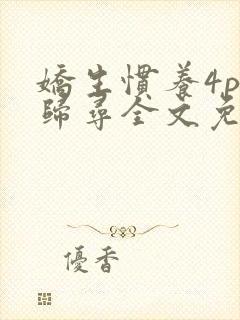 嬌生慣養4p
歸尋全文免
優香